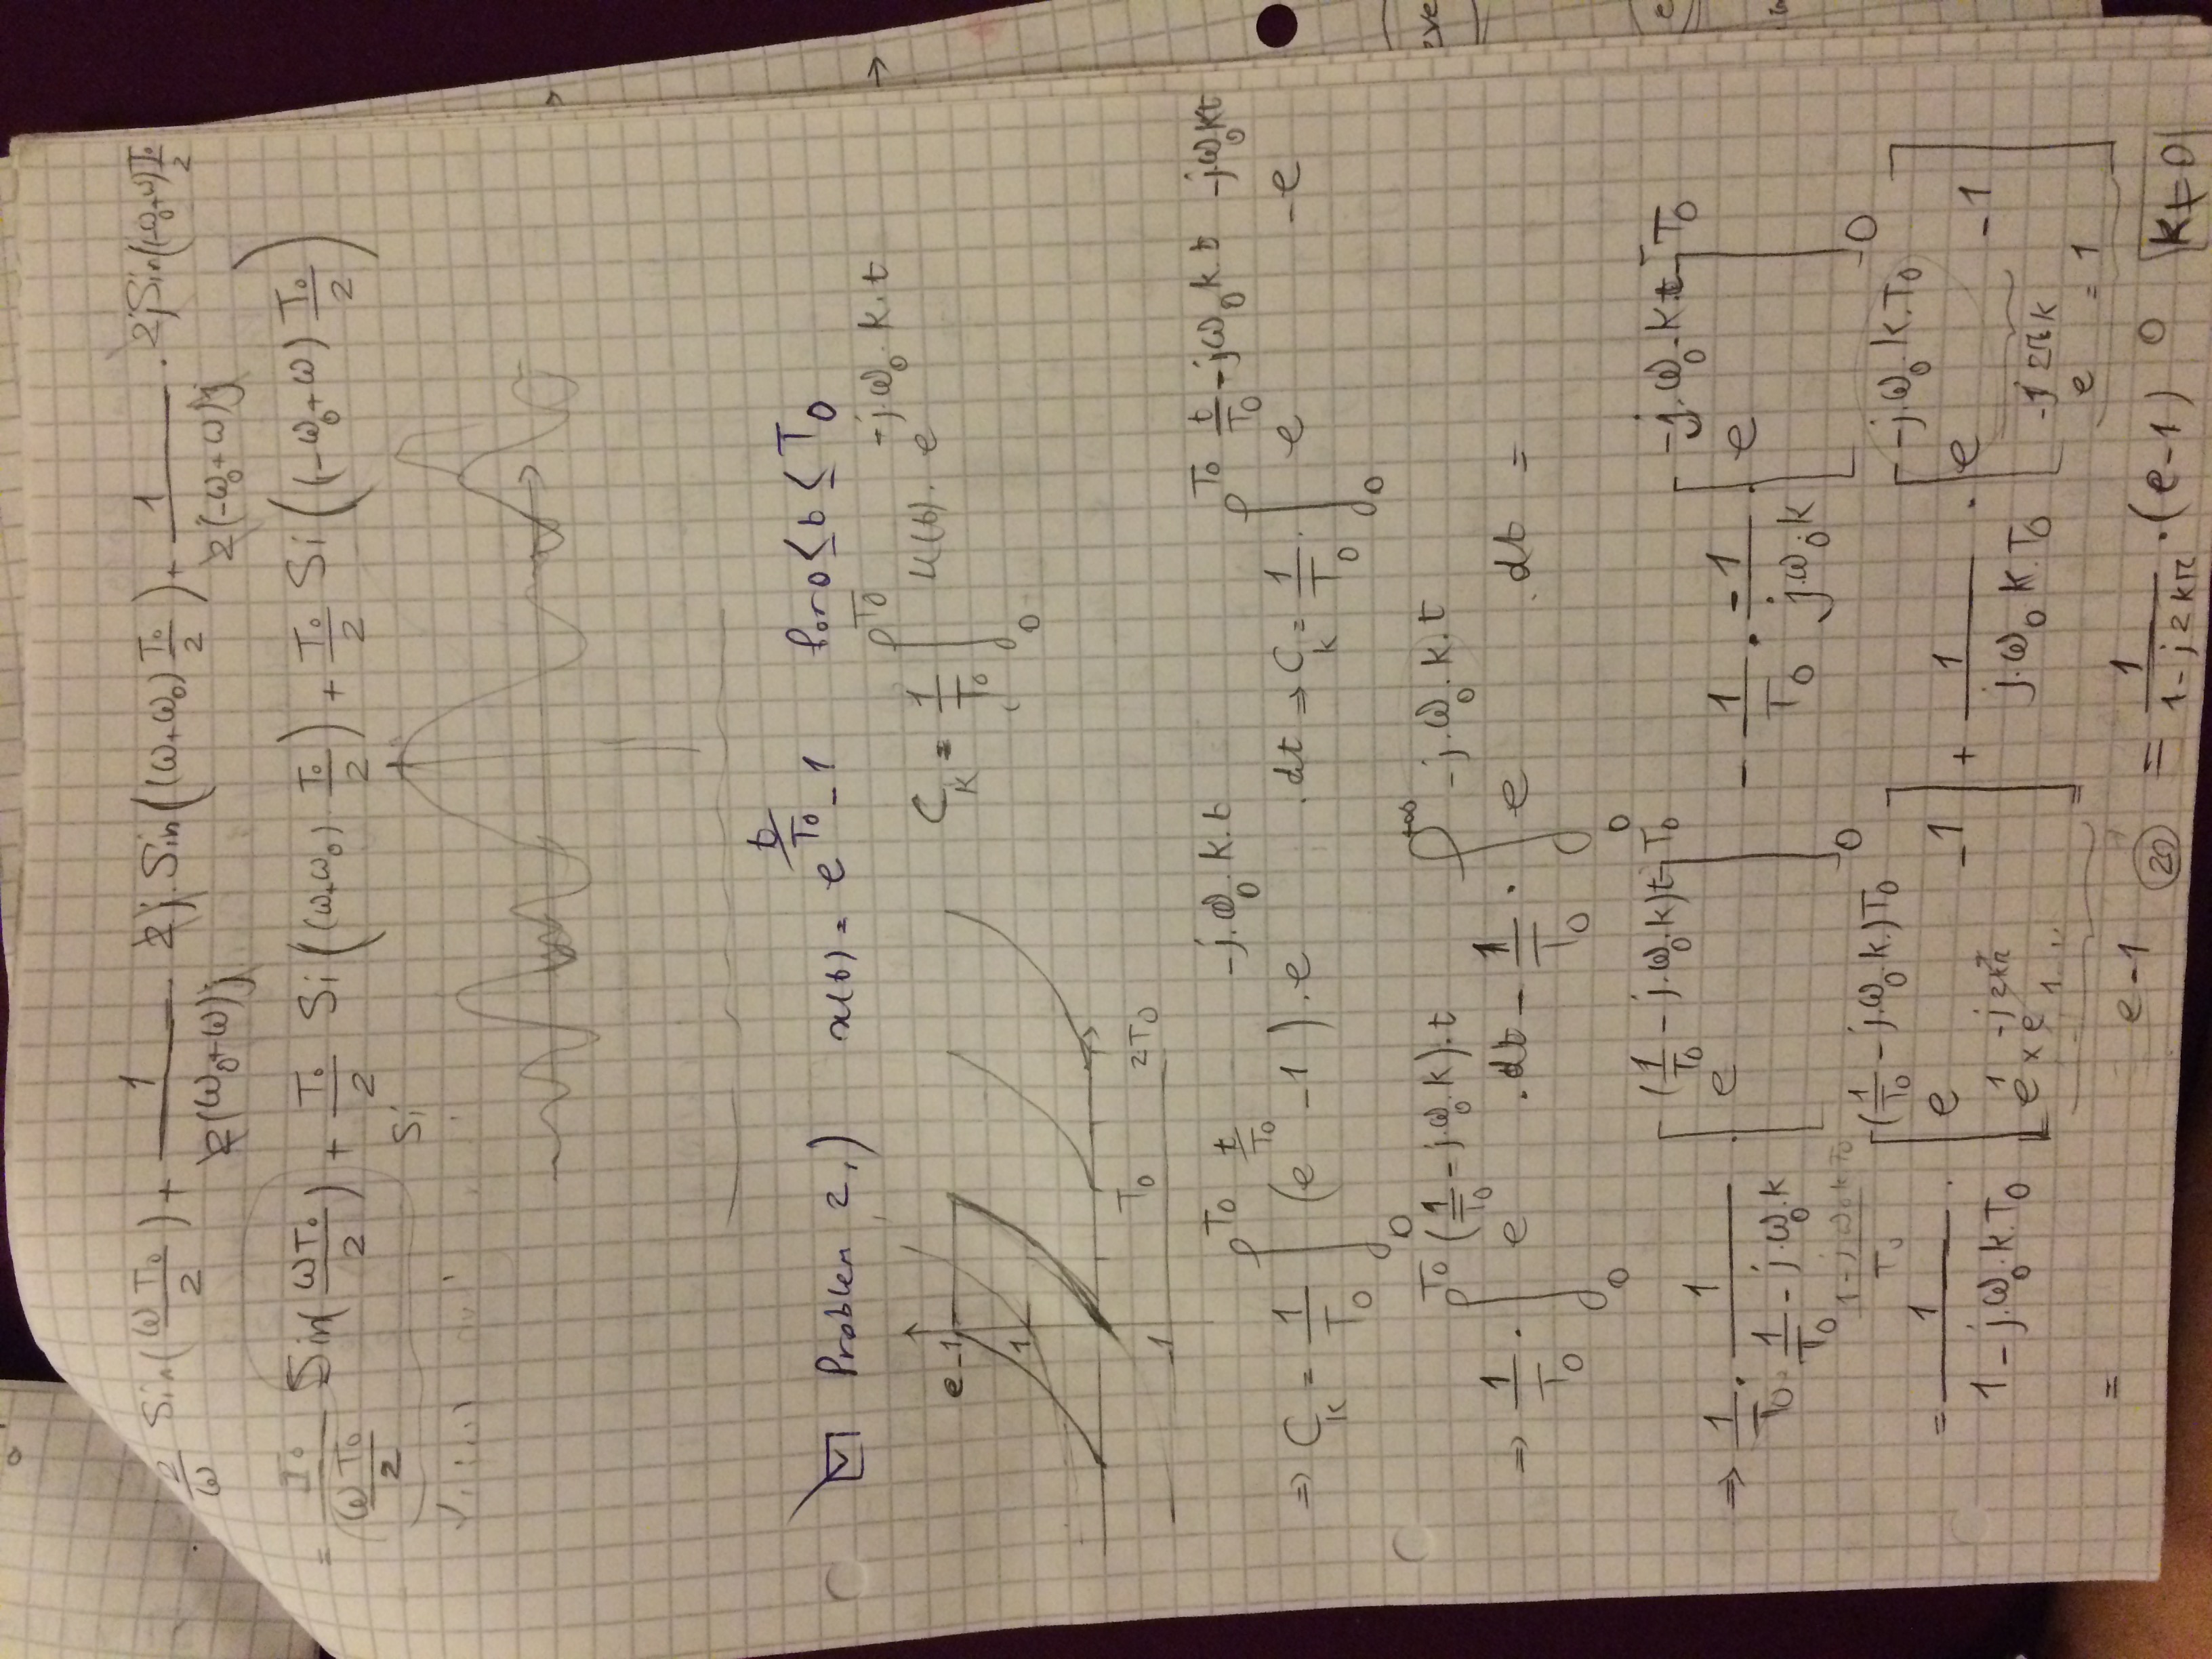 2/ω Sin(ωT₀/2) + 1/(2(ω₀+ω)j) · 2j · Sin((ω+ω₀) T₀/2) + 1/(2(-ω₀+ω)j) · 2jSin((-ω₀+ω) T₀/2)
= T₀/(ωT₀/2) Sin(ωT₀/2) + T₀/2 Si((ω+ω₀) · T₀/2) + T₀/2 Si((-ω₀+ω) T₀/2)
Si
Problem 2,) x(t) = e^(t/T₀) - 1 for 0 ≤ t ≤ T₀
C_k = 1/T₀ ∫₀^T₀ x(t) · e^(-j·ω₀·k·t)
e-1
1
T₀ 2T₀
-1
⇒ C_k = 1/T₀ ∫₀^T₀ (e^(t/T₀) - 1) · e^(-j·ω₀·k·t) · dt ⇒ C_k = 1/T₀ · ∫₀^T₀ e^(t/T₀ - jω₀k·t) - e^(-jω₀kt)
⇒ 1/T₀ · ∫₀^T₀ e^((1/T₀ - j·ω₀·k)·t) · dt - 1/T₀ · ∫₀^+∞ e^(-j·ω₀·k·t) · dt =
⇒ 1/T₀ · 1/(1/T₀ - j·ω₀·k) · [e^((1/T₀ - j·ω₀·k)t)]₀^T₀ - 1/T₀ · -1/(j·ω₀·k) · [e^(-j·ω₀·k·t)]₀^T₀
(1-jω₀kT₀)/T₀
= 1/(1-j·ω₀·k·T₀) · [e^((1/T₀ - j·ω₀·k·)T₀) - 1] + 1/(j·ω₀k·T₀) · [e^(-j·ω₀·k·T₀) - 1]
e¹ × e^(-j2kπ) 1 e^(-j2πk) = 1
= e-1
20 = 1/(1-j2kπ) · (e-1) 0 k≠0